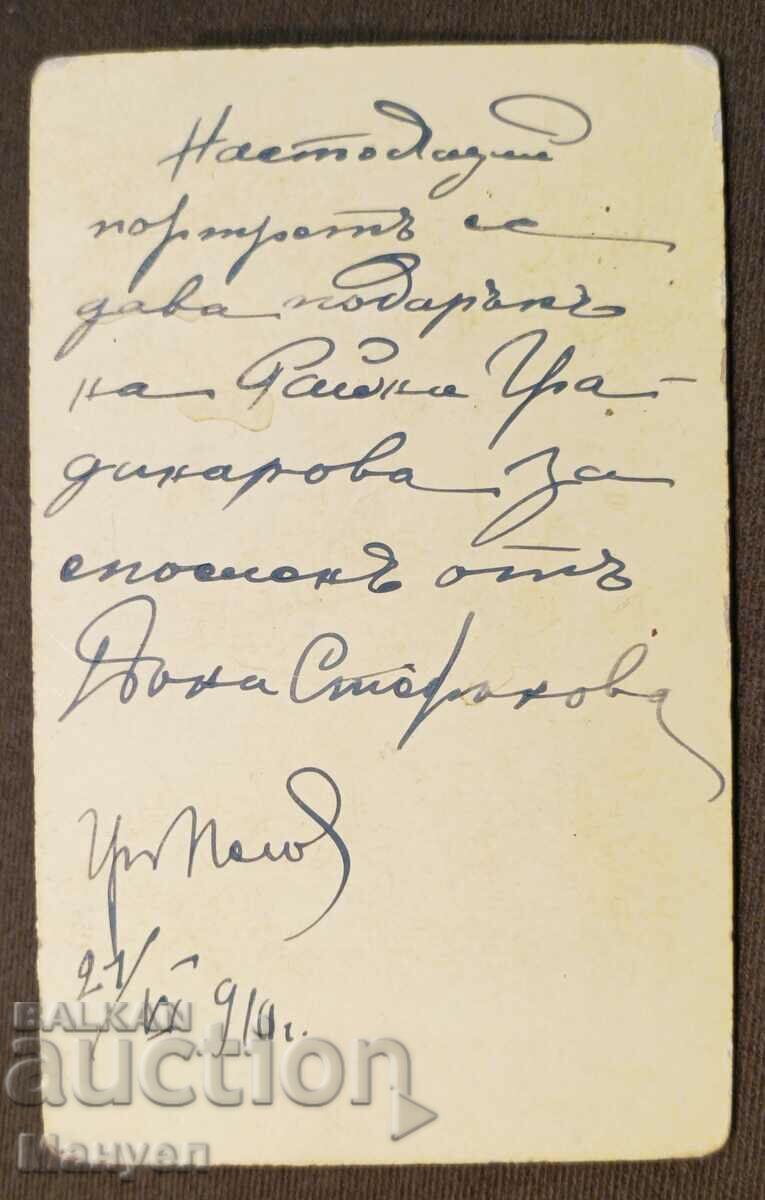 Настоящий
портретъ се
дава подаръкъ
на Райна Гра-
динарова за
споменъ отъ
Дона Стефанова
21/VI 910 г.
BALKAN
auction
Мануел